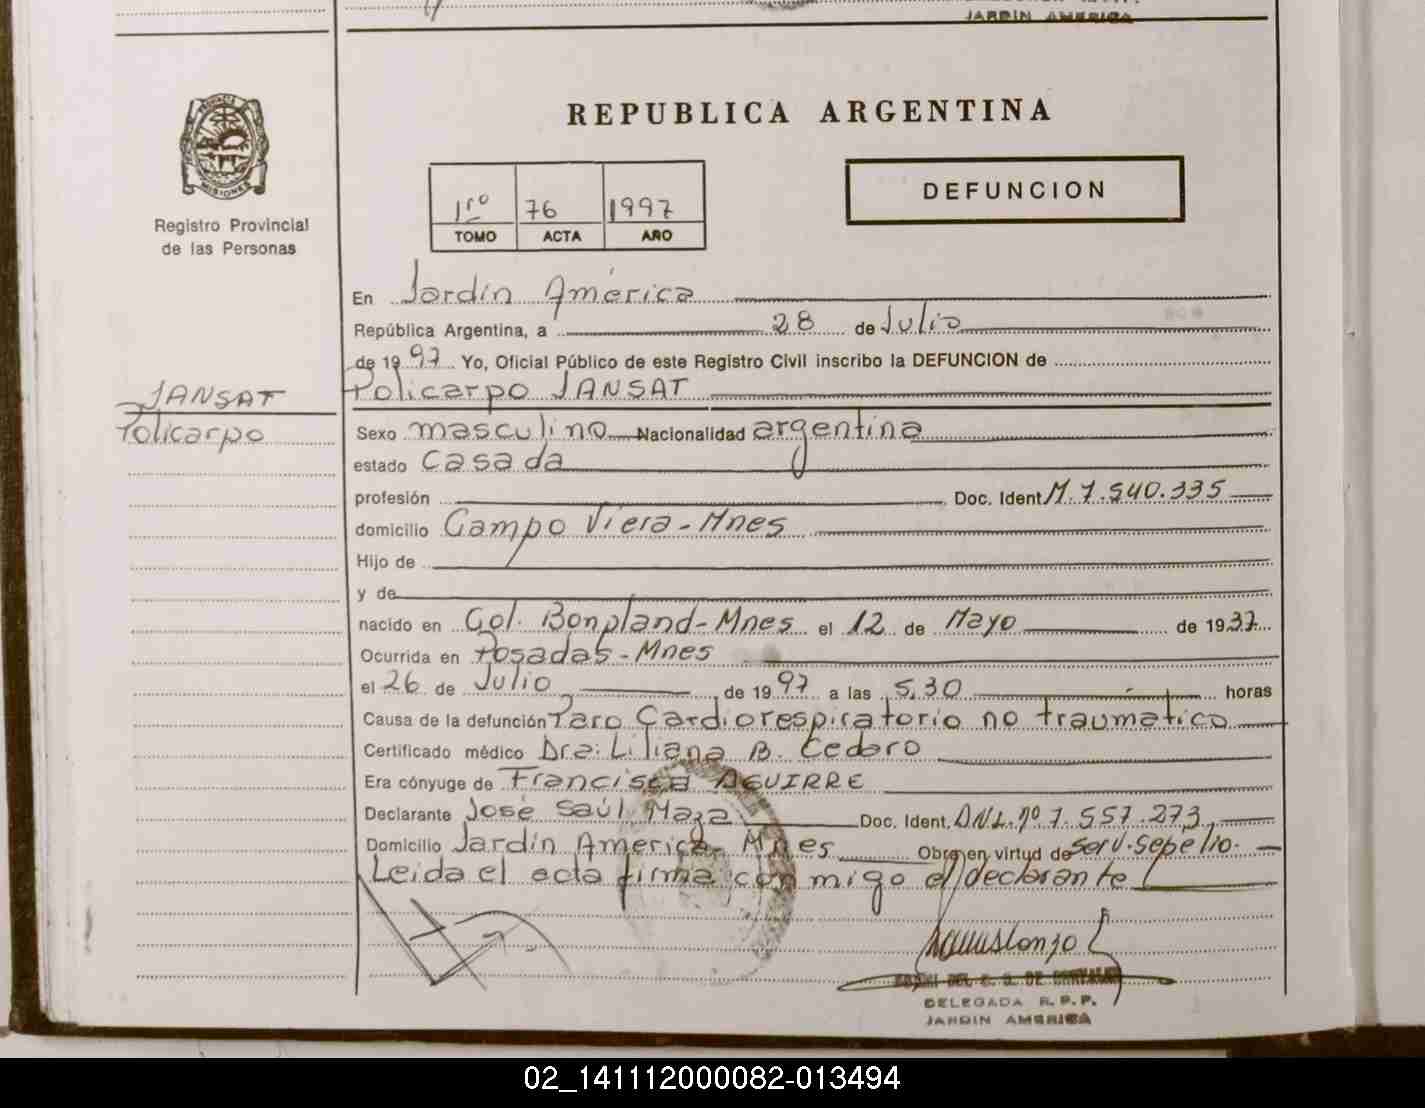 JARDIN AMERICA
REPUBLICA ARGENTINA
PROVINCIA DE
MISIONES
Registro Provincial
de las Personas
1ro 76 1997
TOMO ACTA AÑO
DEFUNCION
En Jardín América
República Argentina, a 28 de Julio
de 1997 Yo, Oficial Público de este Registro Civil inscribo la DEFUNCION de
Policarpo JANSAT
JANSAT
Policarpo
Sexo masculino Nacionalidad argentina
estado casada
profesión Doc. Ident M. 7.540.335
domicilio Campo Viera - Mnes
Hijo de
y de
nacido en Col. Bonpland - Mnes el 12 de Mayo de 1937
Ocurrida en Posadas - Mnes
el 26 de Julio de 1997 a las 5,30 horas
Causa de la defunción Paro Cardiorespiratorio no traumático
Certificado médico Dra. Liliana B. Cedaro
Era cónyuge de Francisca AGUIRRE
Declarante José Saúl Maza Doc. Ident. DNI. nº 7.557.273
Domicilio Jardín América - Mnes Obra en virtud de serv. sepelio.
Leída el acta firma conmigo el declarante
DELEGADA R.P.P.
JARDIN AMERICA
02_141112000082-013494